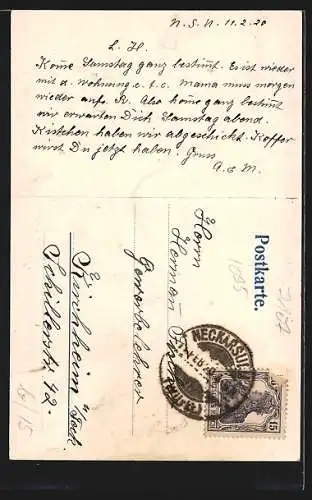 N. S. U. 11.2.20
L. H.
Kome Samstag ganz bestimt. Es ist wieder
mit d. Wohnung e.t.c. Mama muss morgen
wieder aufs R. Also kome ganz bestimt
wir erwarten Dich Samstag abend.
Kistchen haben wir abgeschickt. Koffer
wirst Du jetzt haben. Gruss
A. & M.
Postkarte.
1095
Herrn
Herman
Gewerbelehrer
Kirchheim u/Teck.
Schillerstr 42.
NECKARSULM
15